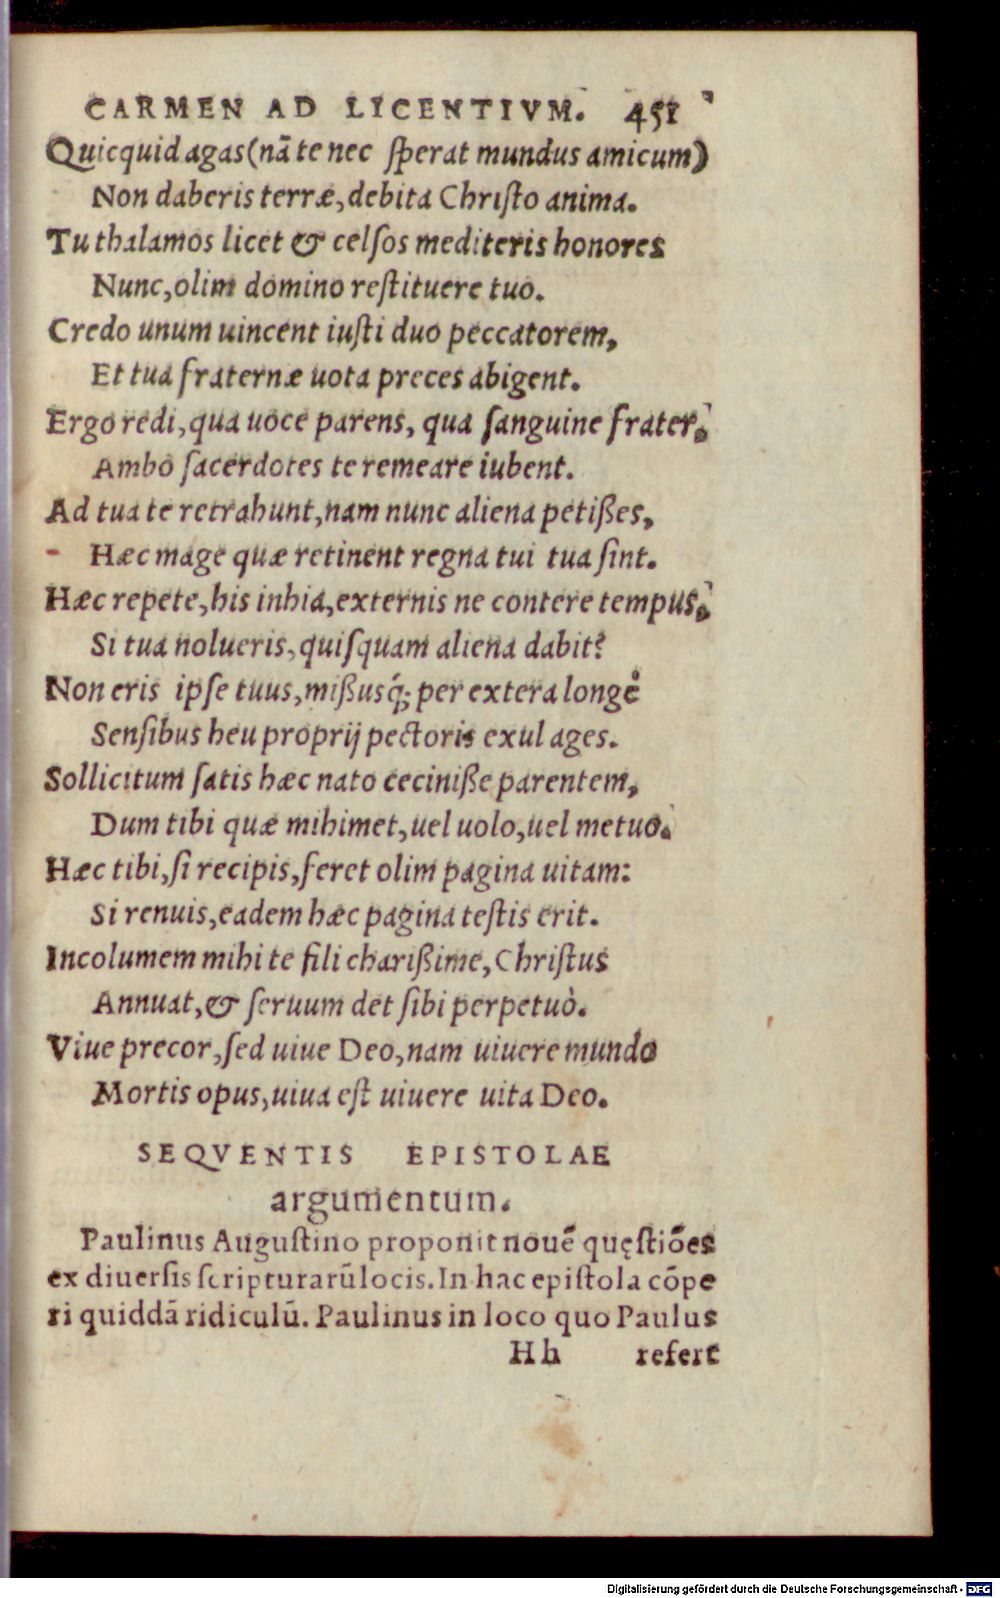 CARMEN AD LICENTIVM. 451
Quicquid agas (nã te nec ſperat mundus amicum)
Non daberis terræ, debita Chriſto anima.
Tu thalamos licet & celſos mediteris honores
Nunc, olim domino reſtituere tuo.
Credo unum uincent iuſti duo peccatorem,
Et tua fraternæ uota preces abigent.
Ergo redi, qua uoce parens, qua ſanguine frater,
Ambo ſacerdotes te remeare iubent.
Ad tua te retrahunt, nam nunc aliena petißes,
Hæc mage quæ retinent regna tui tua ſint.
Hæc repete, his inhia, externis ne contere tempus,
Si tua nolueris, quiſquam aliena dabit?
Non eris ipſe tuus, mißusq́; per extera longè
Senſibus heu proprij pectoris exul ages.
Sollicitum ſatis hæc nato ceciniße parentem,
Dum tibi quæ mihimet, uel uolo, uel metuo.
Hæc tibi, ſi recipis, feret olim pagina uitam:
Si renuis, eadem hæc pagina teſtis erit.
Incolumem mihi te fili charißime, Chriſtus
Annuat, & ſeruum det ſibi perpetuò.
Viue precor, ſed uiue Deo, nam uiuere mundo
Mortis opus, uiua eſt uiuere uita Deo.
SEQVENTIS EPISTOLAE
argumentum.
Paulinus Auguſtino proponit nouẽ quęſtiões
ex diuerſis ſcripturarũ locis. In hac epiſtola cõpe
ri quiddã ridiculũ. Paulinus in loco quo Paulus
Hh refert
Digitalisierung gefördert durch die Deutsche Forschungsgemeinschaft - DFG